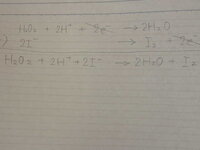 H₂O₂ + 2H⁺ + 2e⁻ → 2H₂O
) 2I⁻ → I₂ + 2e⁻
H₂O₂ + 2H⁺ + 2I⁻ → 2H₂O + I₂